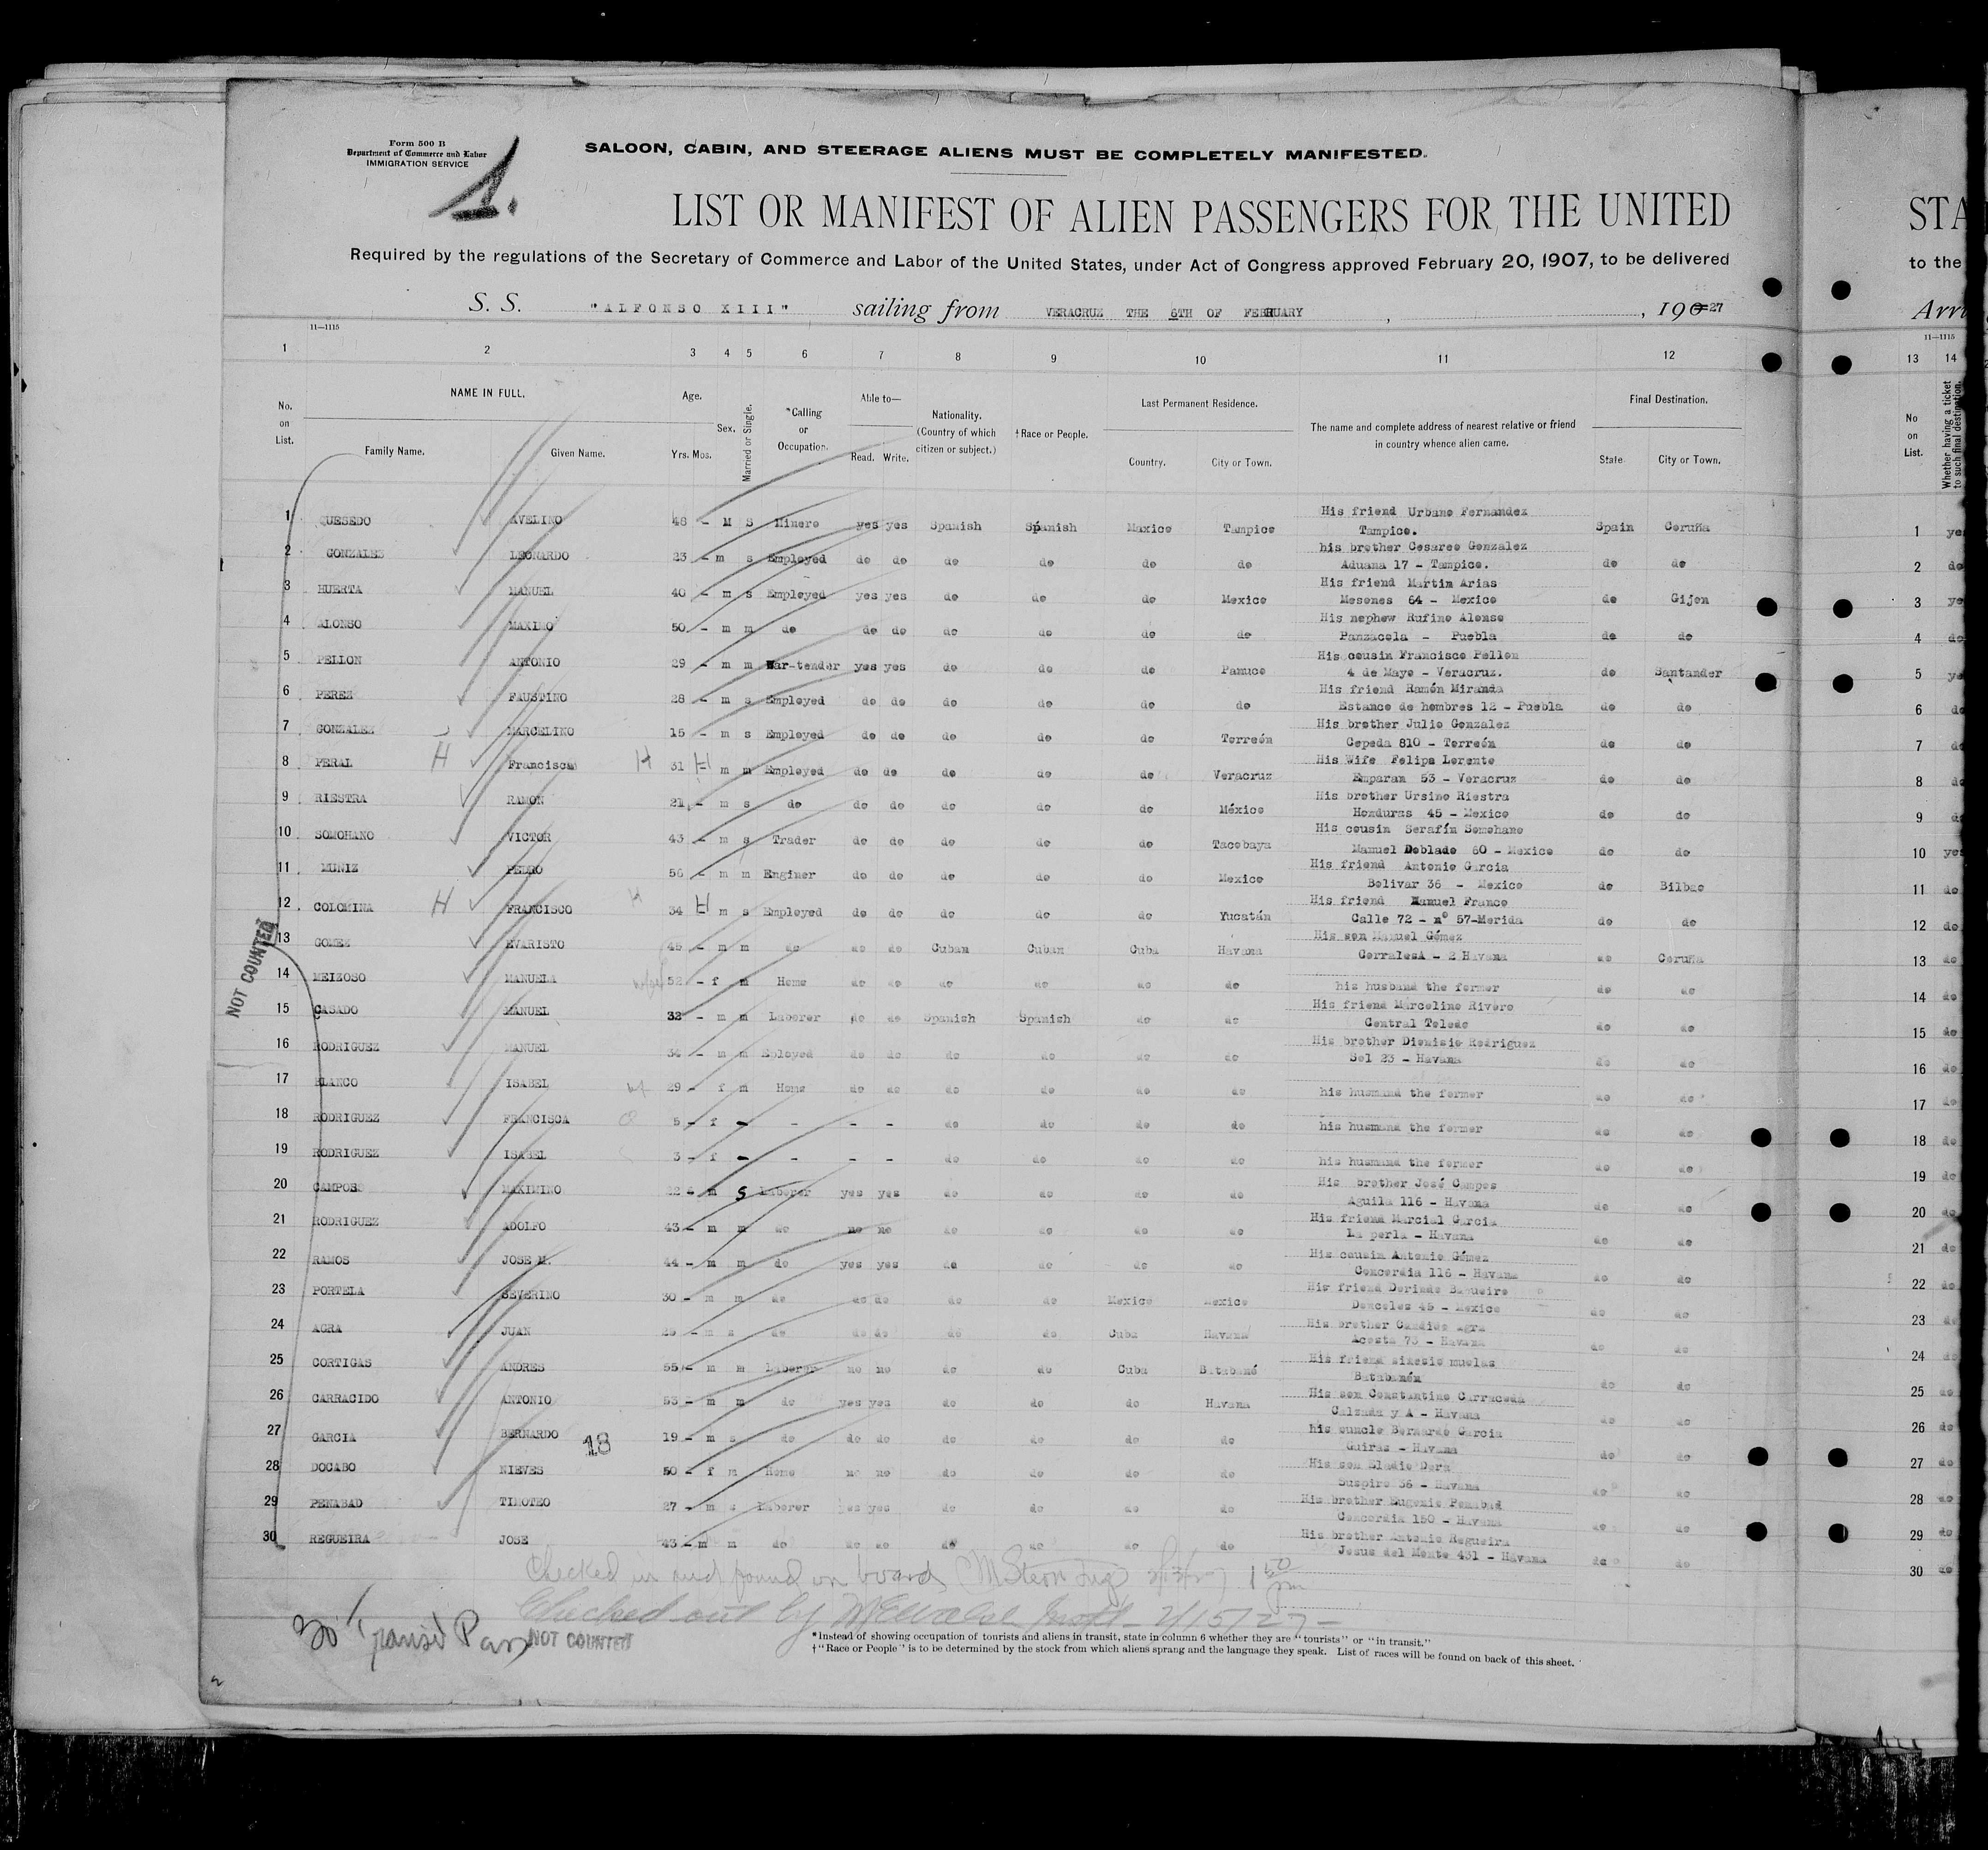 Form 500 B
Department of Commerce and Labor
IMMIGRATION SERVICE
1.
SALOON, CABIN, AND STEERAGE ALIENS MUST BE COMPLETELY MANIFESTED.
LIST OR MANIFEST OF ALIEN PASSENGERS FOR THE UNITED STA
Required by the regulations of the Secretary of Commerce and Labor of the United States, under Act of Congress approved February 20, 1907, to be delivered to the
S. S. "ALFONSO XIII" sailing from VERACRUZ THE 6TH OF FEBRUARY , 190 27 Arri
11—1115 11—1115
1 2 3 4 5 6 7 8 9 10 11 12 13 14
No. on List. NAME IN FULL. Family Name. Given Name. Age. Yrs. Mos. Sex. Married or Single. *Calling or Occupation. Able to— Read. Write. Nationality. (Country of which citizen or subject.) †Race or People. Last Permanent Residence. Country. City or Town. The name and complete address of nearest relative or friend in country whence alien came. Final Destination. State City or Town. No on List. Whether having a ticket to such final destination.
1 QUESEDO AVELINO 48 - M S Minero yes yes Spanish Spanish Maxico Tampico His friend Urbano Fernandez Tampico. Spain Coruña 1 ye
2 GONZALES LEONARDO 23 - m s Employed do do do do do do his brother Cesareo Gonzalez Aduana 17 - Tampico. do do 2 do
3 HUERTA MANUEL 40 - m s Employed yes yes do do do Mexico His friend Martin Arias Mesones 64 - Mexico do Gijon 3 ye
4 ALONSO MAXIMO 50 - m m do do do do do do do His nephew Rufino Alonso Panzacola - Puebla do do 4 do
5 PELLON ANTONIO 29 - m m Bar-tender yes yes do do do Panuco His cousin Francisco Pellon 4 de Mayo - Veracruz. do Santander 5 ye
6 PEREZ FAUSTINO 28 - m s Employed do do do do do do His friend Ramón Miranda Estanco de hombres 12 - Puebla do do 6 do
7 GONZALEZ MARCELINO 15 - m s Employed do do do do do Torreón His brother Julio Gonzalez Cepeda 810 - Torreón do do 7 do
8 PERAL H Francisca H 31 H m m Employed do do do do do Veracruz His Wife Felipa Lorente Emparan 53 - Veracruz do do 8 do
9 RIESTRA RAMON 21 - m s do do do do do do México His brother Ursino Riestra Honduras 45 - Mexico do do 9 do
10 SOMOHANO VICTOR 43 - m s Trader do do do do do Tacobaya His cousin Serafín Somohano Manuel Doblado 60 - Mexico do do 10 yes
11 MUNIZ PEDRO 56 - m m Enginer do do do do do Mexico His friend Antonio Garcia Bolivar 36 - Mexico do Bilbao 11 do
12 COLOMINA H FRANCISCO H 34 H m s Employed do do do do do Yucatán His friend Manuel Franco Calle 72 - nº 57-Merida do do 12 do
13 GOMEZ EVARISTO 45 - m m do do do Cuban Cuban Cuba Havana His son Manuel Gómez CorralesA - 2 Havana do Coruña 13 do
14 MEIZOSO MANUELA wife 52 - f m Home do do do do do do his husband the former do do 14 do
15 CASADO MANUEL 32 - m m Laborer do do Spanish Spanish do do His friend Marcelino Rivero Central Toledo do do 15 do
16 RODRIGUEZ MANUEL 34 - m m Eployed do do do do do do His brother Dionisio Rodriguez Sol 23 - Havana do do 16 do
17 BLANCO ISABEL wf 29 - f m Home do do do do do do his husmand the former do do 17 do
18 RODRIGUEZ FRANCISCA 5 - f - - - - do do do do his husmand the former do do 18 do
19 RODRIGUEZ ISABEL 3 - f - - - - do do do do his husmand the former do do 19 do
20 CAMPOS MAXIMINO 22 - m S Laborer yes yes do do do do His brother José Campos Aguila 116 - Havana do do 20 do
21 RODRIGUEZ ADOLFO 43 - m m do no no do do do do His friend Marcial Garcia La perla - Havana do do 21 do
22 RAMOS JOSE M. 44 - m m do yes yes do do do do His cousin Antonio Gómez Concordia 116 - Havana do do 22 do
23 PORTELA SEVERINO 30 - m m do do do do do Mexico Mexico His friend Dorindo Donceles 45 - Mexico do do 23 do
24 AGRA JUAN - m s do do do do do Cuba Havana His brother Candido agra Acosta 73 - Havana do do 24 do
25 CORTIGAS ANDRES 55 - m m Laborer no no do do Cuba Batabanó His friend muelas do do 25 do
26 CARRACIDO ANTONIO 53 - m m do yes yes do do do Havana His son Constantino Carraceda Calzada y A - Havana do do 26 do
27 GARCIA BERNARDO 18 19 - m s do do do do do do do his ouncle Bernardo Garcia Guiras - Havana do do 27 do
28 DOCABO NIEVES 50 - f m Home no no do do do do His son Eladio Suspiro 36 - Havana do do 28 do
29 PENABAD TIMOTEO 27 - m s Laborer yes yes do do do do His brother Eugenio Penabad Concordia 150 - Havana do do 29 do
30 REGUEIRA JOSE 43 - m m do do do do do do do His brother Antonio Regueira Jesus del Monte 431 - Havana do do 30 do
NOT COUNTED
Checked in and found on board M Stern Insp 2/13/27 1 50 pm
Checked out by Insp 2/15/27 -
30 Transit Pass NOT COUNTED
*Instead of showing occupation of tourists and aliens in transit, state in column 6 whether they are "tourists" or "in transit."
†"Race or People" is to be determined by the stock from which aliens sprang and the language they speak. List of races will be found on back of this sheet.